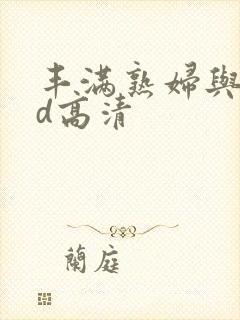 丰满熟婦與
d高清
蘭庭